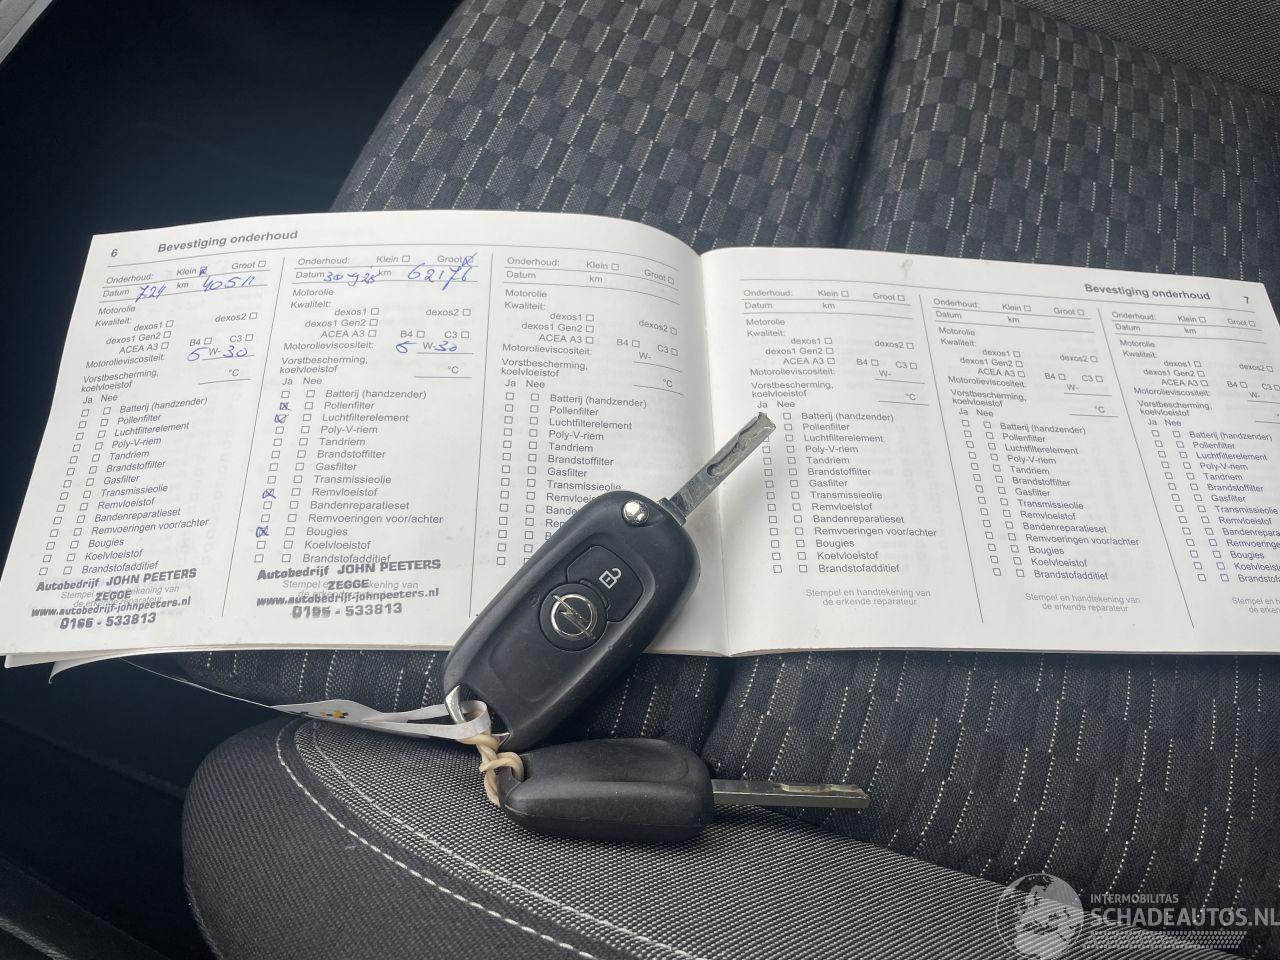 6 Bevestiging onderhoud
Onderhoud: Klein ☒ Groot ☐
Datum 7.24 km 40511
Motorolie
Kwaliteit:
dexos1 ☐ dexos2 ☐
dexos1 Gen2 ☐
ACEA A3 ☐ B4 ☐ C3 ☐
Motorolieviscositeit: 5 W-30
Vorstbescherming,
koelvloeistof °C
Ja Nee
☐ ☐ Batterij (handzender)
☐ ☐ Pollenfilter
☐ ☐ Luchtfilterelement
☐ ☐ Poly-V-riem
☐ ☐ Tandriem
☐ ☐ Brandstoffilter
☐ ☐ Gasfilter
☐ ☐ Transmissieolie
☐ ☐ Remvloeistof
☐ ☐ Bandenreparatieset
☐ ☐ Remvoeringen voor/achter
☐ ☐ Bougies
☐ ☐ Koelvloeistof
☐ ☐ Brandstofadditief
Autobedrijf JOHN PEETERS
ZEGGE
Stempel en handtekening van
www.autobedrijf-johnpeeters.nl
de erkende reparateur
0165 - 533813
Onderhoud: Klein ☐ Groot ☒
Datum 30 9 25 km 62176
Motorolie
Kwaliteit:
dexos1 ☐ dexos2 ☐
dexos1 Gen2 ☐
ACEA A3 ☐ B4 ☐ C3 ☐
Motorolieviscositeit: 5 W-30
Vorstbescherming,
koelvloeistof °C
Ja Nee
☐ ☐ Batterij (handzender)
☒ ☐ Pollenfilter
☒ ☐ Luchtfilterelement
☐ ☐ Poly-V-riem
☐ ☐ Tandriem
☐ ☐ Brandstoffilter
☐ ☐ Gasfilter
☐ ☐ Transmissieolie
☒ ☐ Remvloeistof
☐ ☐ Bandenreparatieset
☐ ☐ Remvoeringen voor/achter
☒ ☐ Bougies
☐ ☐ Koelvloeistof
☐ ☐ Brandstofadditief
Autobedrijf JOHN PEETERS
ZEGGE
Stempel en handtekening van
www.autobedrijf-johnpeeters.nl
de erkende reparateur
0165 - 533813
Onderhoud: Klein ☐ Groot ☐
Datum km
Motorolie
Kwaliteit:
dexos1 ☐ dexos2 ☐
dexos1 Gen2 ☐
ACEA A3 ☐ B4 ☐ C3 ☐
Motorolieviscositeit: W-
Vorstbescherming,
koelvloeistof °C
Ja Nee
☐ ☐ Batterij (handzender)
☐ ☐ Pollenfilter
☐ ☐ Luchtfilterelement
☐ ☐ Poly-V-riem
☐ ☐ Tandriem
☐ ☐ Brandstoffilter
☐ ☐ Gasfilter
☐ ☐ Transmissieolie
☐ ☐ Remvloeistof
Bevestiging onderhoud 7
Onderhoud: Klein ☐ Groot ☐
Datum km
Motorolie
Kwaliteit:
dexos1 ☐ dexos2 ☐
dexos1 Gen2 ☐
ACEA A3 ☐ B4 ☐ C3 ☐
Motorolieviscositeit: W-
Vorstbescherming,
koelvloeistof °C
Ja Nee
☐ Batterij (handzender)
☐ Pollenfilter
☐ Luchtfilterelement
☐ ☐ Poly-V-riem
☐ ☐ Tandriem
☐ ☐ Brandstoffilter
☐ ☐ Gasfilter
☐ ☐ Transmissieolie
☐ ☐ Remvloeistof
☐ ☐ Bandenreparatieset
☐ ☐ Remvoeringen voor/achter
☐ ☐ Bougies
☐ ☐ Koelvloeistof
☐ ☐ Brandstofadditief
Stempel en handtekening van
de erkende reparateur
Onderhoud: Klein ☐ Groot ☐
Datum km
Motorolie
Kwaliteit:
dexos1 ☐ dexos2 ☐
dexos1 Gen2 ☐
ACEA A3 ☐ B4 ☐ C3 ☐
Motorolieviscositeit: W-
Vorstbescherming,
koelvloeistof °C
Ja Nee
☐ ☐ Batterij (handzender)
☐ ☐ Pollenfilter
☐ ☐ Luchtfilterelement
☐ ☐ Poly-V-riem
☐ ☐ Tandriem
☐ ☐ Brandstoffilter
☐ ☐ Gasfilter
☐ ☐ Transmissieolie
☐ ☐ Remvloeistof
☐ ☐ Bandenreparatieset
☐ ☐ Remvoeringen voor/achter
☐ ☐ Bougies
☐ ☐ Koelvloeistof
☐ ☐ Brandstofadditief
Stempel en handtekening van
de erkende reparateur
Onderhoud: Klein ☐ Groot ☐
Datum km
Motorolie
Kwaliteit:
dexos1 ☐ dexos2 ☐
dexos1 Gen2 ☐
ACEA A3 ☐ B4 ☐ C3 ☐
Motorolieviscositeit: W-
Vorstbescherming,
koelvloeistof
Ja Nee
☐ ☐ Batterij (handzender)
☐ ☐ Pollenfilter
☐ ☐ Luchtfilterelement
☐ ☐ Poly-V-riem
☐ ☐ Tandriem
☐ ☐ Brandstoffilter
☐ ☐ Gasfilter
☐ ☐ Transmissieolie
☐ ☐ Remvloeistof
☐ ☐ Bandenreparatieset
☐ ☐ Remvoeringen
☐ ☐ Bougies
☐ ☐ Koelvloeistof
Stempel en
de
INTERMOBILITAS
SCHADEAUTOS.NL